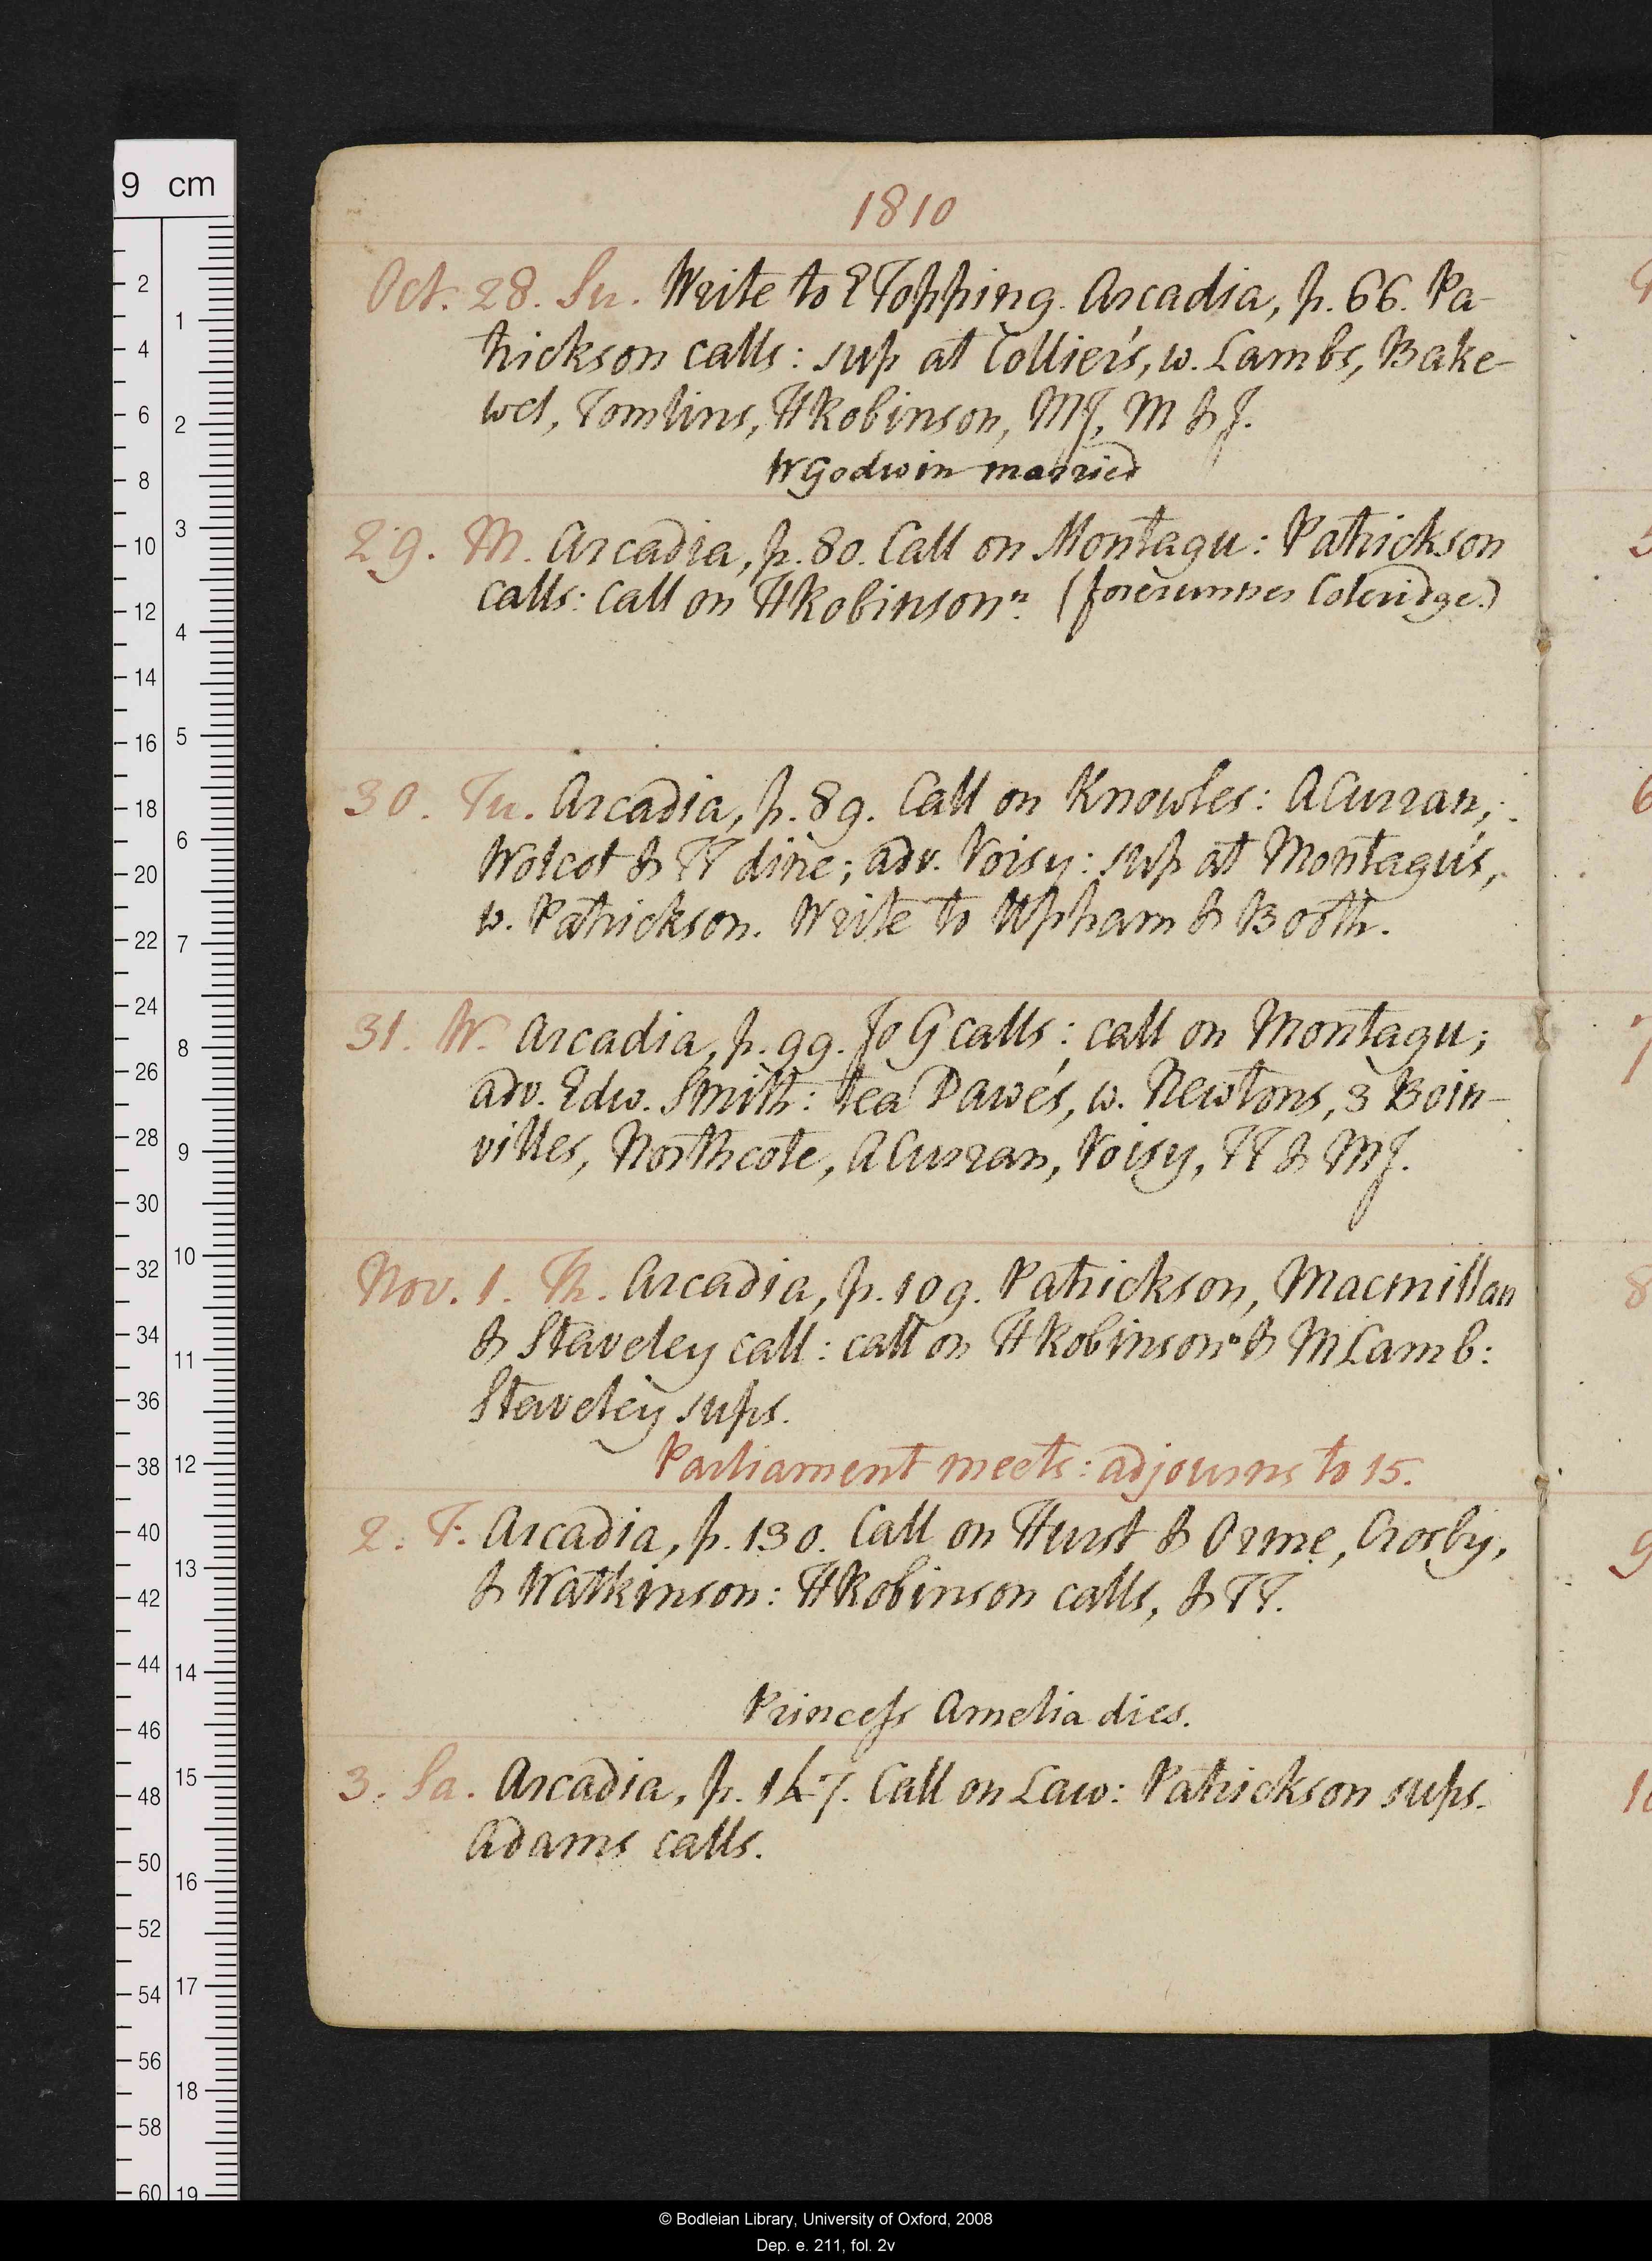 1810
Oct. 28. Su. Write to E Topping. Arcadia, p. 66. Pa-
trickson calls: sup at Collier's, w. Lambs, Bake-
wel, Tomlins, HRobinson, MJ, M & J.
WGodwin married
29. M. Arcadia, p. 80. Call on Montagu: Patrickson
calls: call on HRobinsonⁿ. (forerunner Coleridge.)
30. Tu. Arcadia, p. 89. Call on Knowles: ACurran,
Wolcot & TT dine; adv. Voisy: sup at Montagu's,
w. Patrickson. Write to Upham & Booth.
31. W. Arcadia, p. 99. Jo G calls: call on Montagu;
adv. Edw. Smith: tea Dawe's, w. Newtons, 3 Boin-
villes, Northcote, ACurran, Voisy, TT & MJ.
Nov. 1. Th. Arcadia, p. 109. Patrickson, Macmillan
& Staveley call: call on HRobinsonⁿ & MLamb:
Staveley sups.
Parliament meets: adjourns to 15.
2. F. Arcadia, p. 130. Call on Hurst & Orme, Crosby,
& Watkinson: HRobinson calls, & TT.
Princess Amelia dies.
3. Sa. Arcadia, p. 147. Call on Law: Patrickson sups.
Adams calls.
9 cm
2
4
6
8
10
12
14
16
18
20
22
24
26
28
30
32
34
36
38
40
42
44
46
48
50
52
54
56
58
60
1
2
3
4
5
6
7
8
9
10
11
12
13
14
15
16
17
18
19
© Bodleian Library, University of Oxford, 2008
Dep. e. 211, fol. 2v